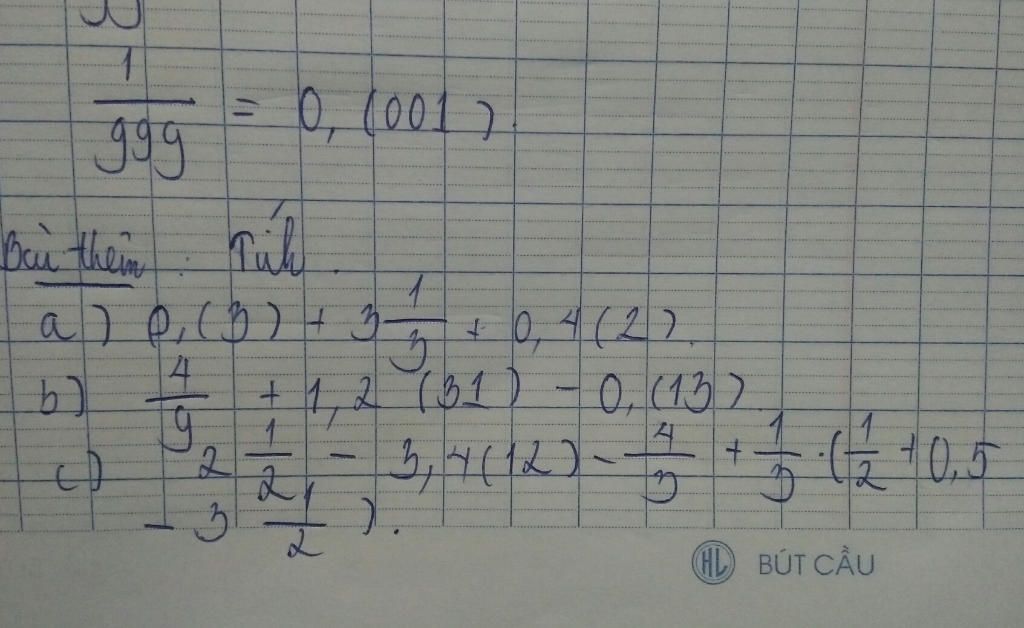 1/999 = 0,(001)
Bài thêm : Tính.
a) 0,(3) + 3 1/3 + 0,4(2).
b) 4/9 + 1,2(31) - 0,(13)
c) 2 1/2 - 3,4(12) - 4/3 + 1/3 . (1/2 + 0,5
- 3 1/2).
HL BÚT CẦU